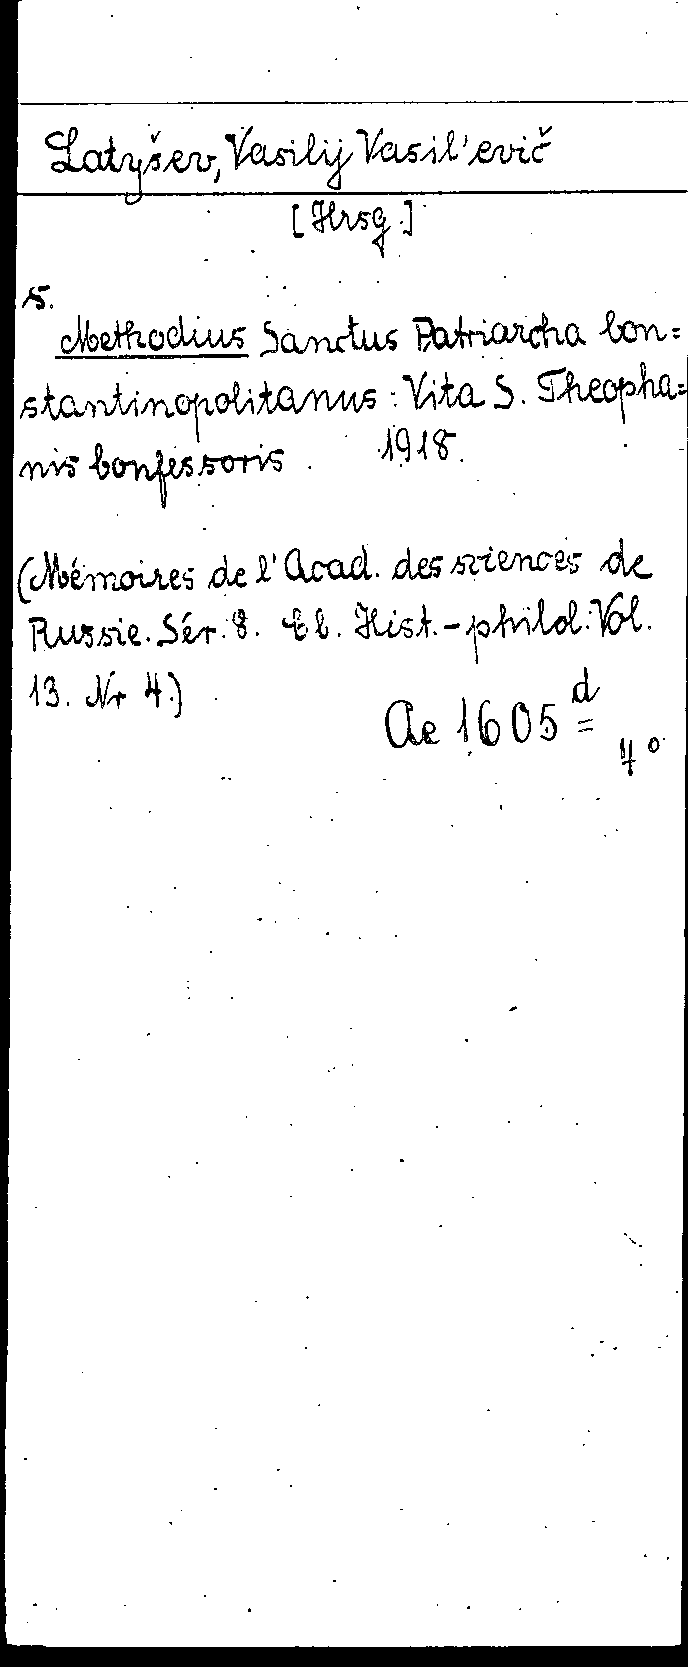 Latyšev, Vasilij Vasil'evič
[Hrsg.]
s.
Methodius Sanctus Patriarcha Con=
stantinopolitanus: Vita S. Theopha=
nis Confessoris 1918.
(Mémoires de l'Acad. des sciences de
Russie. Sér. 8. Cl. Hist.-philol. Vol.
13. Nr 4.)
Ae 1605 d
4°